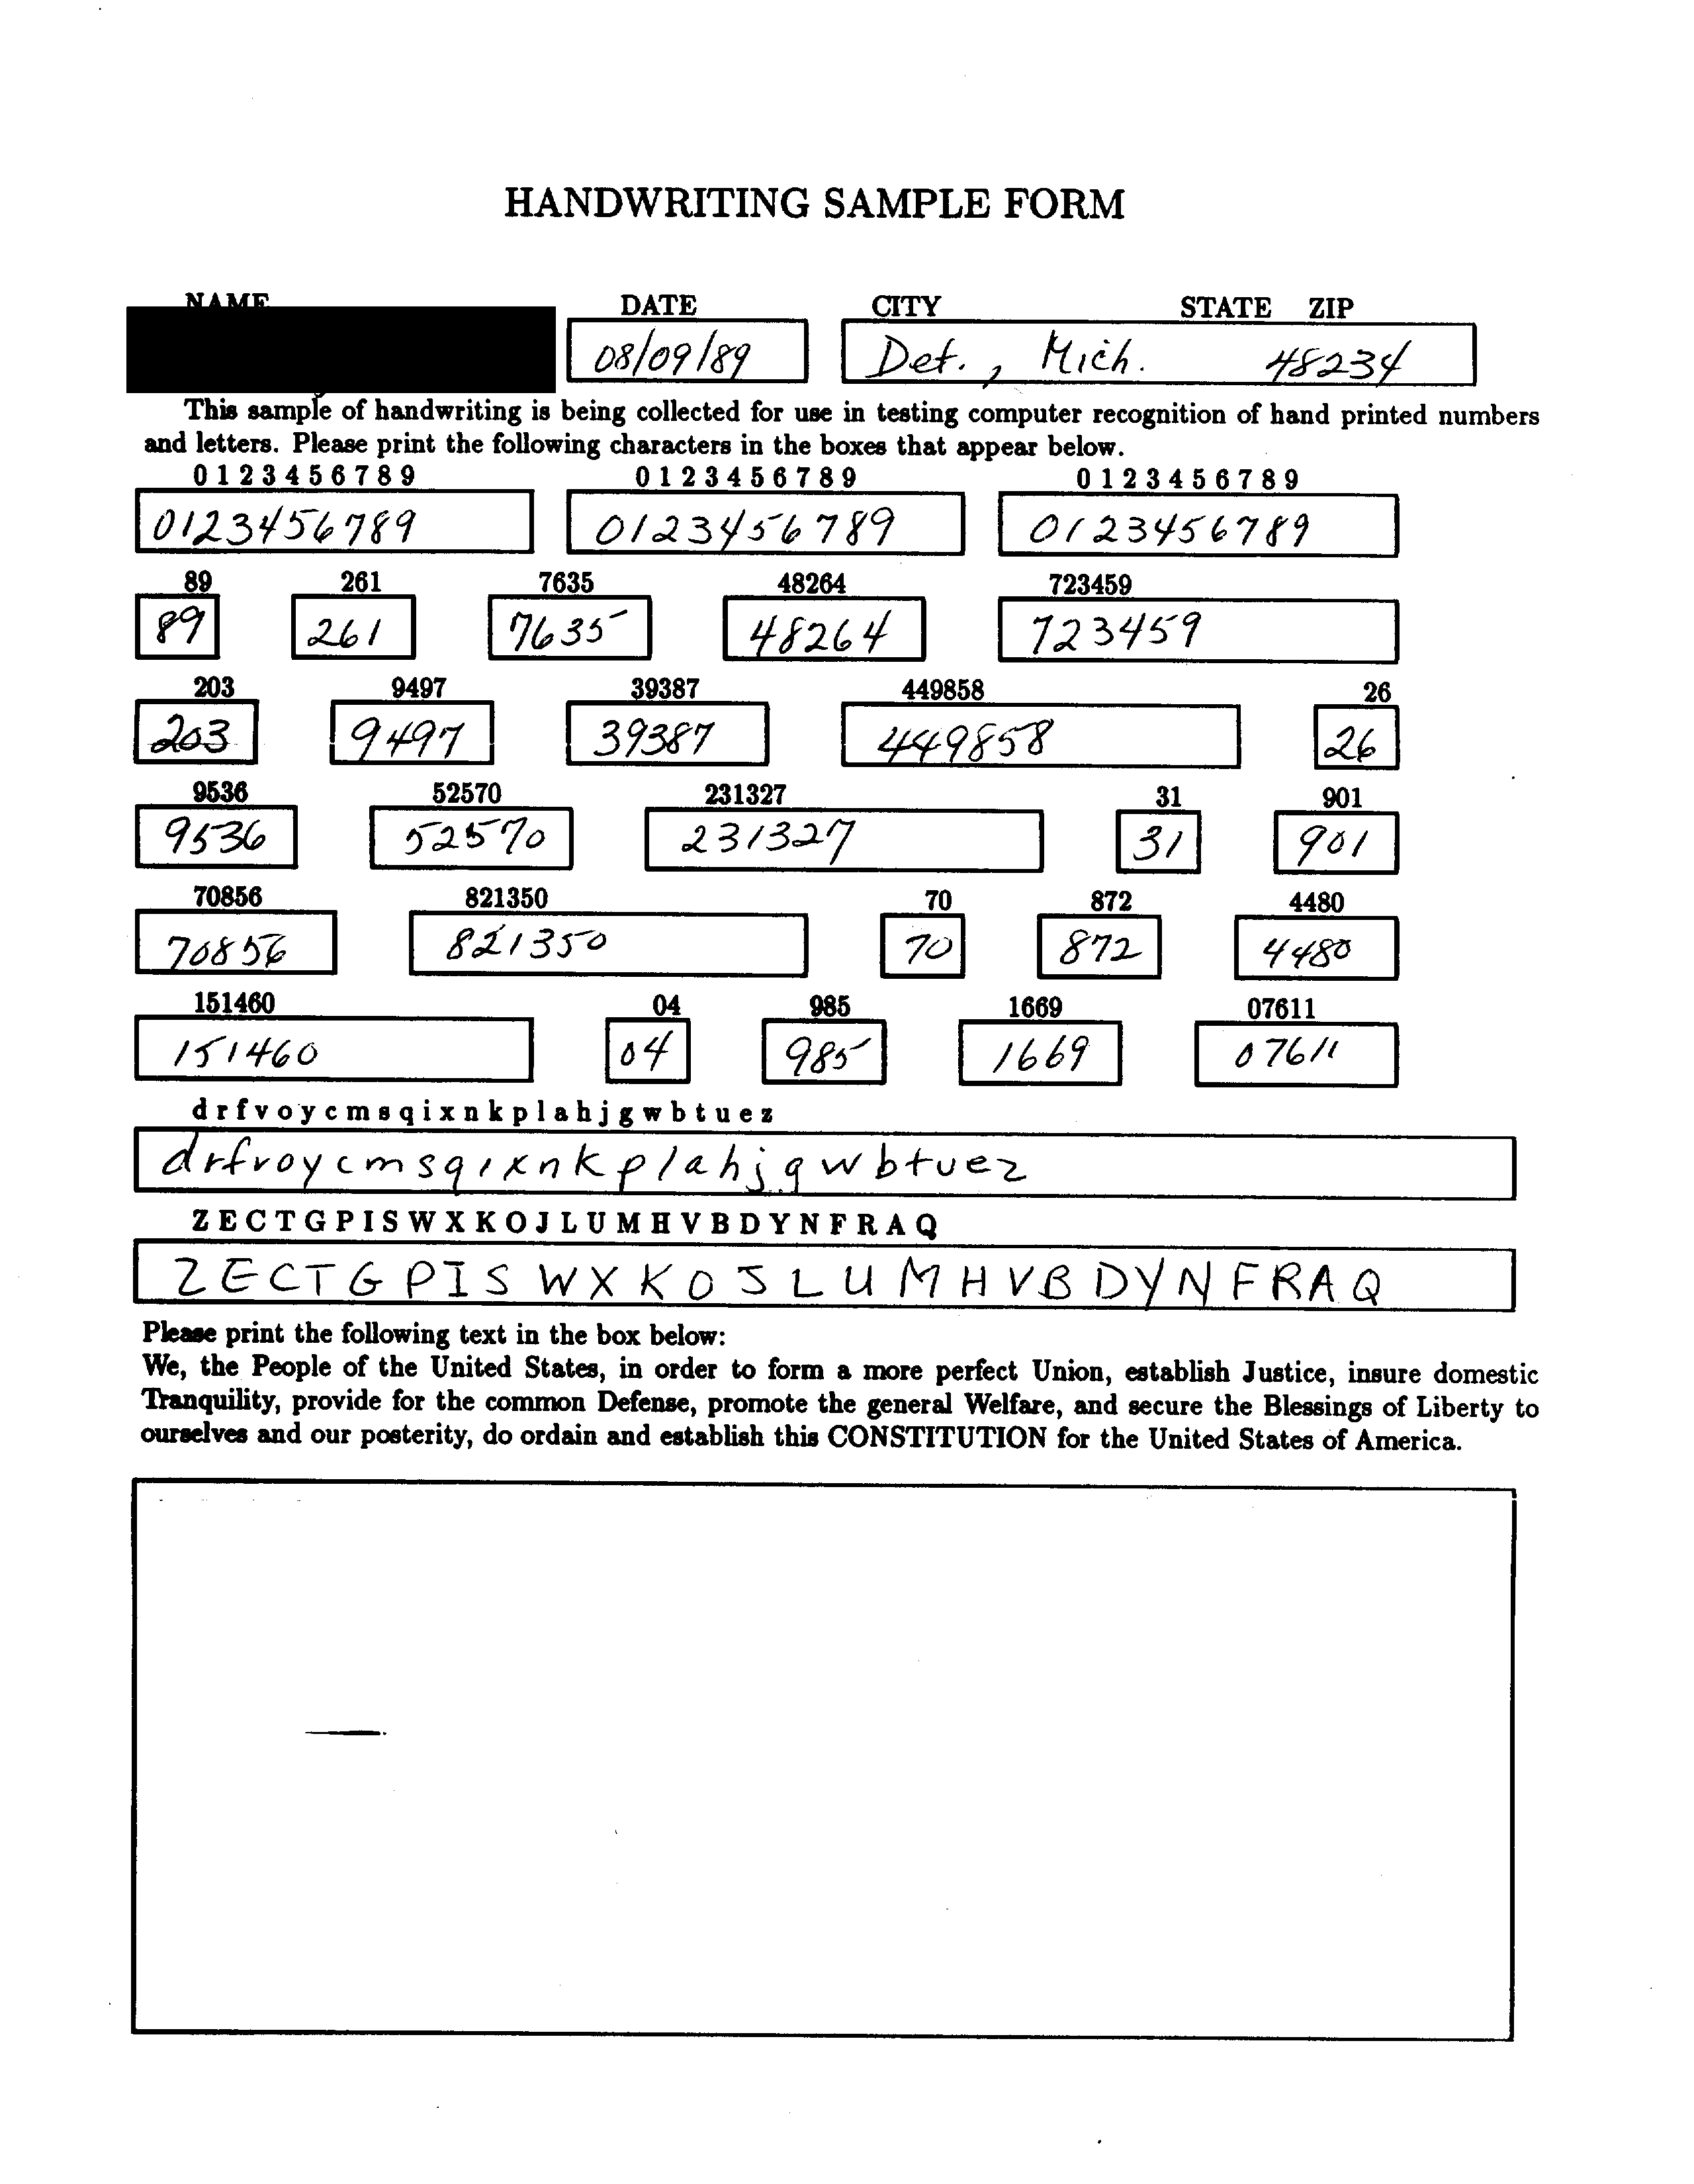 HANDWRITING SAMPLE FORM
NAME DATE CITY STATE ZIP
08/09/89 Det., Mich. 48234
This sample of handwriting is being collected for use in testing computer recognition of hand printed numbers
and letters. Please print the following characters in the boxes that appear below.
0 1 2 3 4 5 6 7 8 9 0 1 2 3 4 5 6 7 8 9 0 1 2 3 4 5 6 7 8 9
0123456789 0123456789 0123456789
89 261 7635 48264 723459
89 261 7635 48264 723459
203 9497 39387 449858 26
203 9497 39387 449858 26
9536 52570 231327 31 901
9536 52570 231327 31 901
70856 821350 70 872 4480
70856 821350 70 872 4480
151460 04 985 1669 07611
151460 04 985 1669 07611
d r f v o y c m s q i x n k p l a h j g w b t u e z
drfvoycmsqixnkplahjgwbtuez
Z E C T G P I S W X K O J L U M H V B D Y N F R A Q
Z E C T G P I S W X K O J L U M H V B D Y N F R A Q
Please print the following text in the box below:
We, the People of the United States, in order to form a more perfect Union, establish Justice, insure domestic
Tranquility, provide for the common Defense, promote the general Welfare, and secure the Blessings of Liberty to
ourselves and our posterity, do ordain and establish this CONSTITUTION for the United States of America.